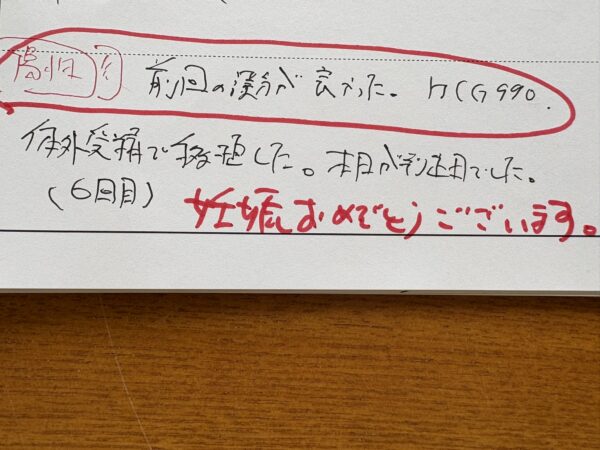 陽性 前回の漢方が良かった。 HCG990.
体外受精で移植した。本日が判定日でした。
(6回目) 妊娠おめでとうございます。